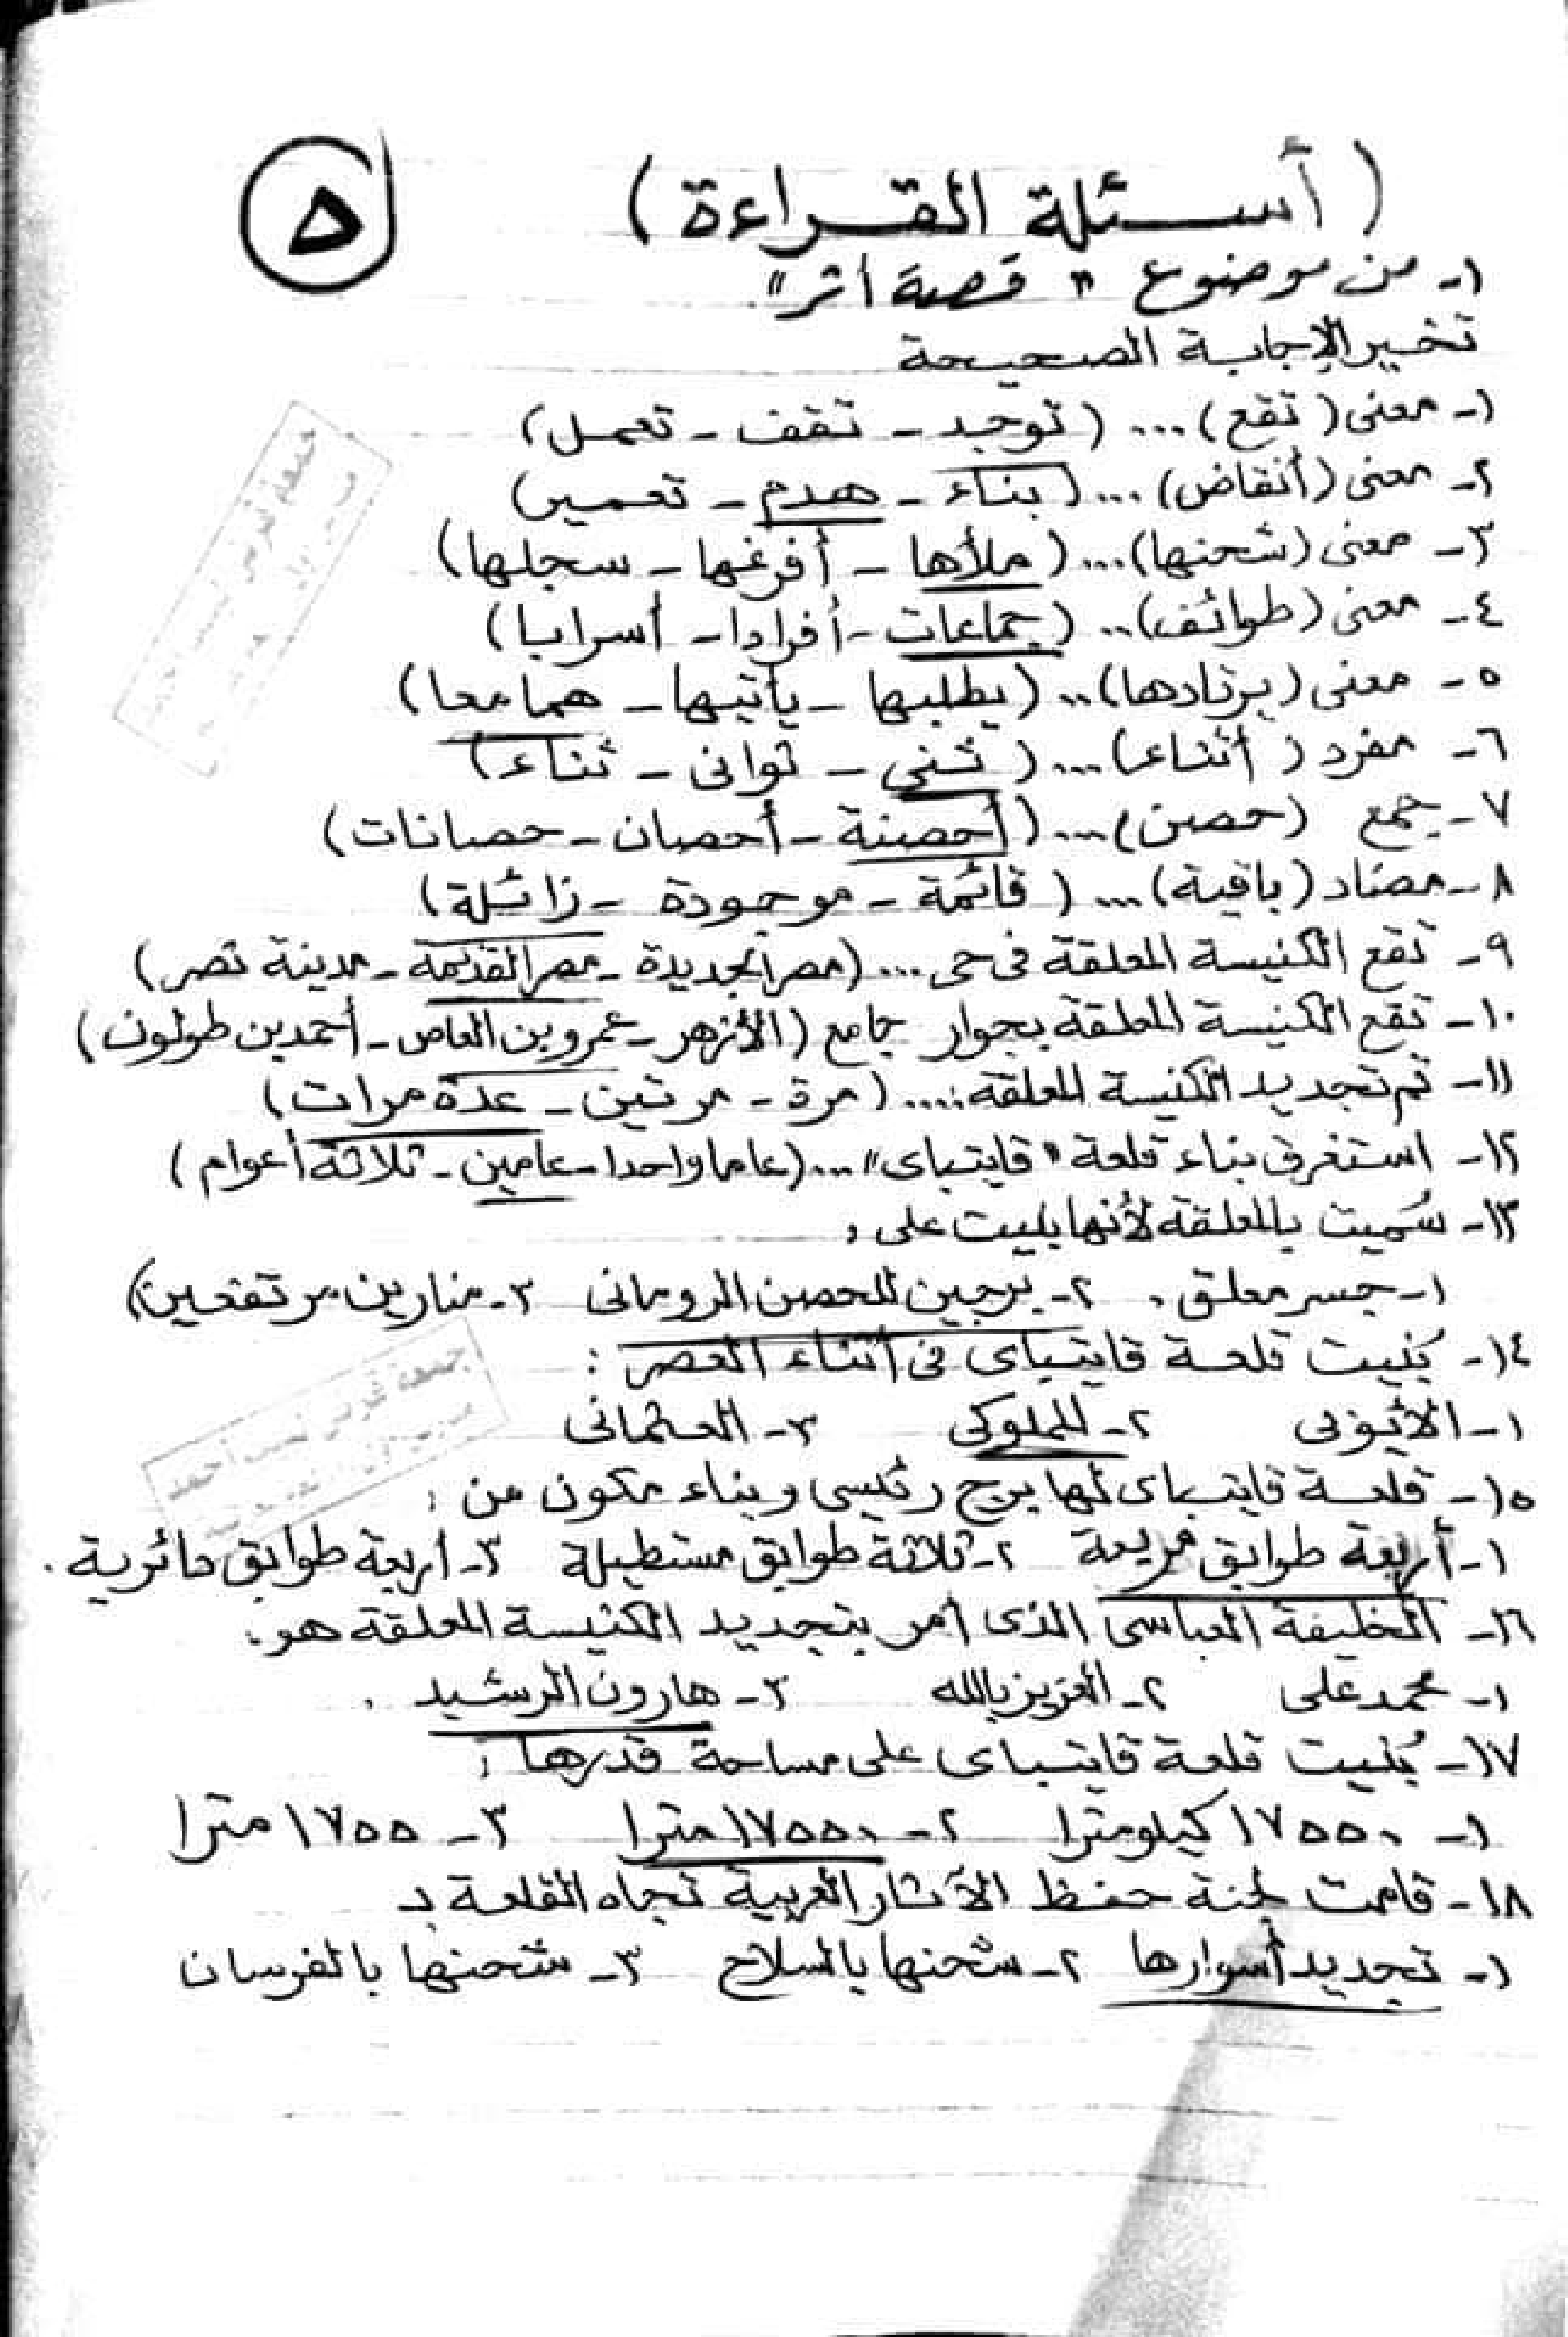 (أسئلة القراءة)
٥
١- من موضوع "قصة أثر"
تخير الإجابة الصحيحة
١- معنى (تقع) ... (توجد - تقف - تعمل)
٢- معنى (أنقاض) ... (بناء - هدم - تعمير)
٣- معنى (شحنها) ... (ملأها - أفرغها - سجلها)
٤- معنى (طوائف) .. (جماعات - أفرادا - أسرابا)
٥- معنى (يرتادها) .. (يطلبها - يأتيها - هما معا)
٦- مفرد (أثناء) ... (ثنى - ثوانى - ثناء)
٧- جمع (حصن) ... (أحصنة - أحصان - حصانات)
٨- مضاد (باقية) ... (قائمة - موجودة - زائلة)
٩- تقع الكنيسة المعلقة فى حى ... (مصر الجديدة - مصر القديمة - مدينة نصر)
١٠- تقع الكنيسة المعلقة بجوار جامع (الأزهر - عمرو بن العاص - أحمد بن طولون)
١١- تم تجديد الكنيسة المعلقة .... (مرة - مرتين - عدة مرات)
١٢- استغرق بناء قلعة "قايتباى" ... (عاما واحدا - عامين - ثلاثة أعوام)
١٣- سُميت بالمعلقة لأنها بنيت على :
١- جسر معلق . ٢- برجين للحصن الرومانى ٣- منارين مرتفعين)
١٤- بُنيت قلعة قايتباى فى أثناء العصر :
١- الأيوبى ٢- المملوكى ٣- العثمانى
١٥- قلعة قايتباى لها برج رئيسى وبناء مكون من :
١- أربعة طوابق مربعة ٢- ثلاثة طوابق مستطيلة ٣- أربعة طوابق دائرية .
١٦- الخليفة العباسى الذى أمر بتجديد الكنيسة المعلقة هو :
١- محمد على ٢- العزيز بالله ٣- هارون الرشيد .
١٧- بُنيت قلعة قايتباى على مساحة قدرها :
١- ١٧٥٥٠ كيلومترا ٢- ١٧٥٥٠ مترا ٣- ١٧٥٥ مترا
١٨- قامت لجنة حفظ الآثار العربية تجاه القلعة بـ
١- تجديد أسوارها ٢- شحنها بالسلاح ٣- شحنها بالفرسان